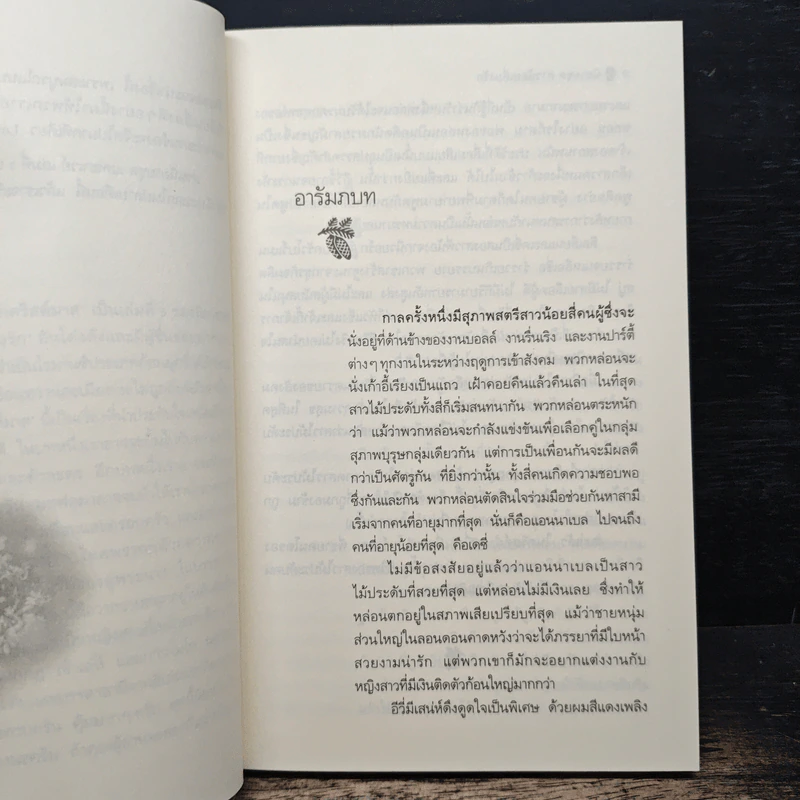 อารัมภบท
กาลครั้งหนึ่งมีสุภาพสตรีสาวน้อยสี่คนผู้ซึ่งจะ
นั่งอยู่ที่ด้านข้างของงานบอลล์ งานรื่นเริง และงานปาร์ตี้
ต่างๆ ทุกงานในระหว่างฤดูการเข้าสังคม พวกหล่อนจะ
นั่งเก้าอี้เรียงเป็นแถว เฝ้าคอยคืนแล้วคืนเล่า ในที่สุด
สาวไม้ประดับทั้งสี่ก็เริ่มสนทนากัน พวกหล่อนตระหนัก
ว่า แม้ว่าพวกหล่อนจะกำลังแข่งขันเพื่อเลือกคู่ในกลุ่ม
สุภาพบุรุษกลุ่มเดียวกัน แต่การเป็นเพื่อนกันจะมีผลดี
กว่าเป็นศัตรูกัน ที่ยิ่งกว่านั้น ทั้งสี่คนเกิดความชอบพอ
ซึ่งกันและกัน พวกหล่อนตัดสินใจร่วมมือช่วยกันหาสามี
เริ่มจากคนที่อายุมากที่สุด นั่นก็คือแอนนาเบล ไปจนถึง
คนที่อายุน้อยที่สุด คือเดซี่
ไม่มีข้อสงสัยอยู่แล้วว่าแอนนาเบลเป็นสาว
ไม้ประดับที่สวยที่สุด แต่หล่อนไม่มีเงินเลย ซึ่งทำให้
หล่อนตกอยู่ในสภาพเสียเปรียบที่สุด แม้ว่าชายหนุ่ม
ส่วนใหญ่ในลอนดอนคาดหวังว่าจะได้ภรรยาที่มีใบหน้า
สวยงามน่ารัก แต่พวกเขาก็มักจะอยากแต่งงานกับ
หญิงสาวที่มีเงินติดตัวก้อนใหญ่มากกว่า
อีวี่มีเสน่ห์ดึงดูดใจเป็นพิเศษ ด้วยผมสีแดงเพลิง